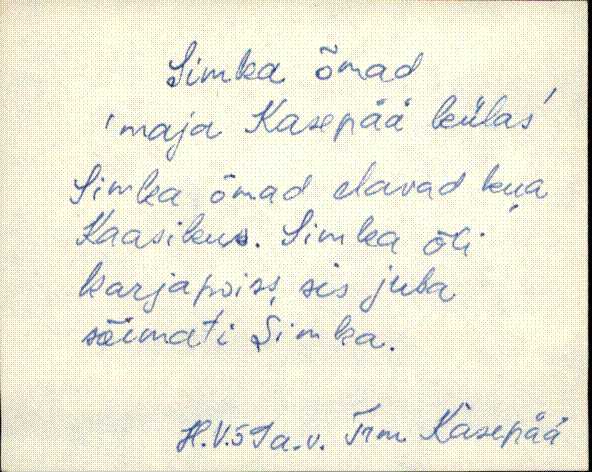 Simka õmad
'maja Kasepää külas'
Simka õmad elavad kua
Kaasikus. Simka õli
karjapoiss, sis juba
sõimati Simka.
H.V. 59 a.v. Trm Kasepää